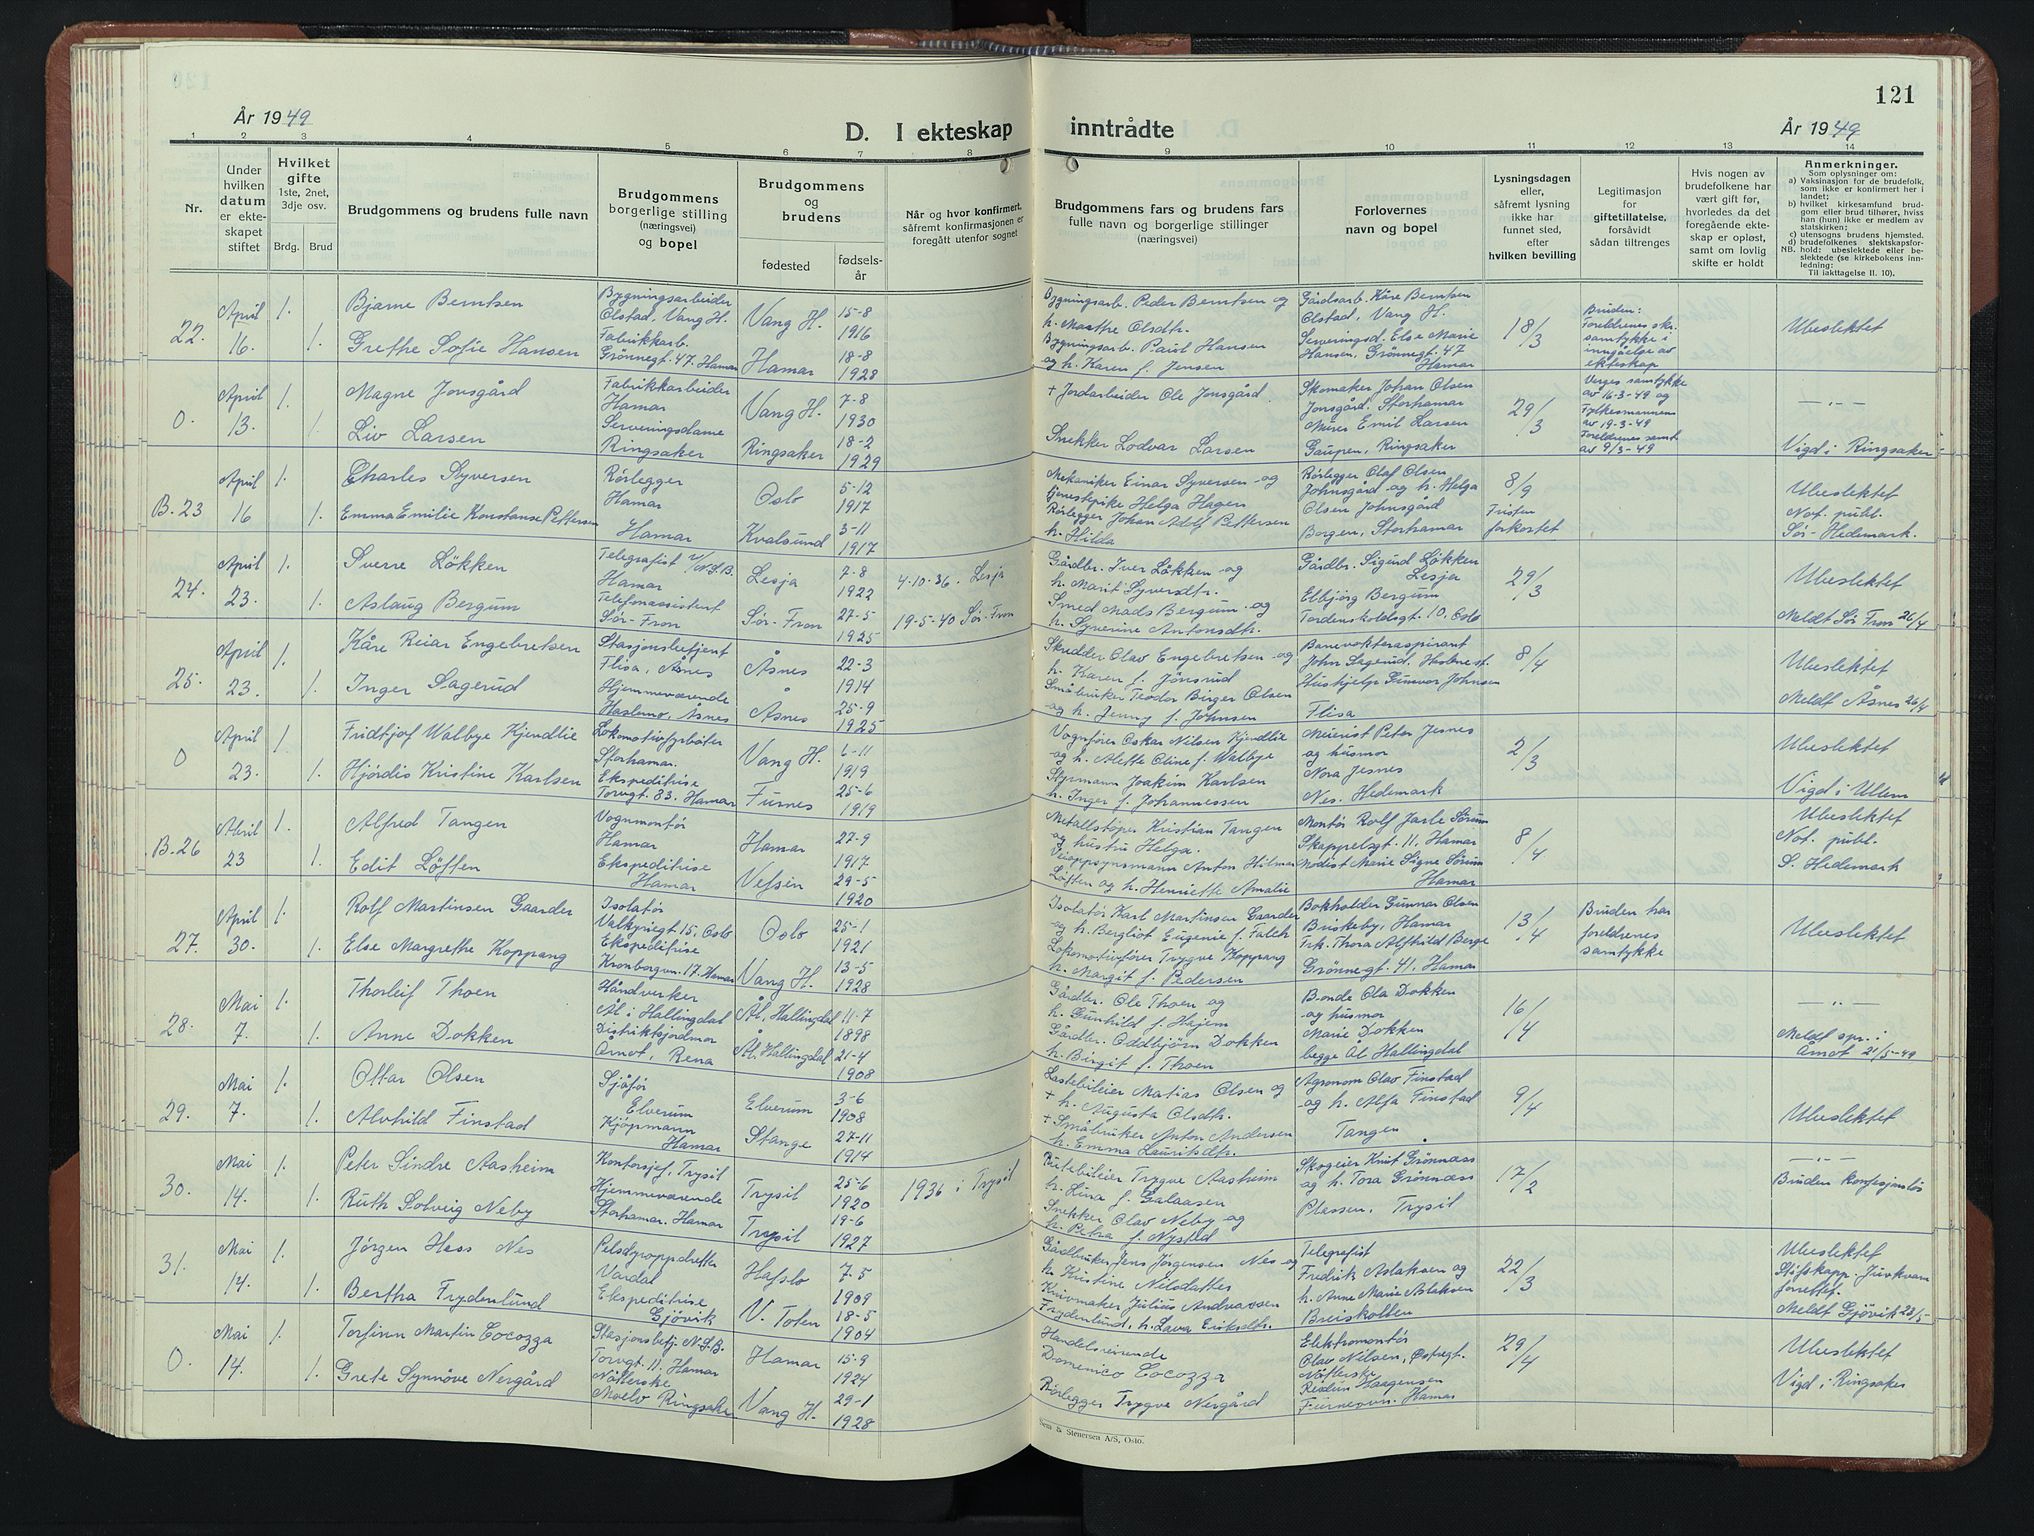 121
År 1949
D. I ekteskap inntrådte
År 1949
1 2 3 4 5 6 7 8 9 10 11 12 13 14
Nr.
Under hvilken datum er ekteskapet stiftet
Hvilket gifte
1ste, 2net, 3dje osv.
Brdg. Brud
Brudgommens og brudens fulle navn
Brudgommens borgerlige stilling (næringsvei) og bopel
Brudgommens og brudens
fødested
fødselsår
Når og hvor konfirmert, såfremt konfirmasjonen er foregått utenfor sognet
Brudgommens fars og brudens fars fulle navn og borgerlige stillinger (næringsvei)
Forlovernes navn og bopel
Lysningsdagen eller, såfremt lysning ikke har funnet sted, efter hvilken bevilling
Legitimasjon for giftetillatelse, forsåvidt sådan tiltrenges
Hvis nogen av brudefolkene har vært gift før, hvorledes da det foregående ekteskap er opløst, samt om lovlig skifte er holdt
Anmerkninger.
Som oplysninger om:
a) Vaksinasjon for de brudefolk, som ikke er konfirmert her i landet;
b) hvilket kirkesamfund brudgom eller brud tilhører, hviss han (hun) ikke er medlem av statskirken;
c) utensogns brudens hjemsted.
d) brudefolkenes slektskapsforhold: ubeslektede eller beslektede (se kirkebokens innledning:
NB. Til iakttagelse II. 10).
22. April 16. 1. 1.
Bjarne Berntsen
Grethe Sofie Hansen
Bygningsarbeider
Olstad, Vang H.
Fabrikkarb.
Grønnegt. 47. Hamar
Vang H. 15-8 1916
Hamar 18-8 1928
Bygningsarb. Peder Berntsen og
h. Marthe Olsdtr.
Bygningsarb. Paul Hansen
og h. Karen f. Jensen
Gårdsarb. Kåre Berntsen
Olstad, Vang H.
Serveringsd. Else Marie
Hansen, Grønnegt. 47
Hamar
18/3
Bruden:
Foreldrenes skr.
samtykke i
inngåelse av
ekteskap
Ubeslektet
0 April 13. 1. 1.
Magne Jonsgård
Liv Larsen
Fabrikkarbeider
Hamar
Serveringsdame
Ringsaker
Vang H. 7-8 1930
Ringsaker 18-2 1929
+ Jordarbeider Ole Jonsgård.
Snekker Lodvar Larsen
Skomaker Johan Olsen
Jonsgård. Storhamar
Murer Emil Larsen
Gaupen, Ringsaker
29/3
Verges samtykke
av 16-3-49 og
Fylkesmannen
av 19-3-49
Foreldrenes samt.
av 9/3-49
— „ —
Vigd i Ringsaker
B. 23 April 16 1. 1.
Charles Syversen
Emma Emilie Konstanse Pettersen
Rørlegger
Hamar
Hamar
Oslo 5-12 1917
Kvalsund 3-11 1917
Mekaniker Einar Syversen og
tjenestepike Helga Hagen
Rørlegger Johan Adolf Pettersen
h. Hilda
Rørlegger Olaf Olsen
Johnsgård og h. Helga
Olsen Johnsgård
Borgen, Storhamar
8/9
Fristen
forkortet
Ubeslektet
Not. publ.
Sør-Hedemark.
24. April 23. 1. 1.
Sverre Løkken
Aslaug Bergum
Telegrafist v/N.S.B.
Hamar
Telefonassistent
Sør-Fron
Lesja 7-8 1922
Sør-Fron 27-5 1925
4-10-36. Lesja
19-5-40 Sør-Fron
Gårdbr. Iver Løkken og
h. Marit Syverdtr.
Smed Mads Bergum og
h. Synerine Antonsdtr.
Gårdbr. Sigurd Løkken
Lesja
Elbjørg Bergum
Tordenskoldsgt. 10. Oslo
29/3
Ubeslektet
Meldt Sør Fron 26/4
25. April 23. 1. 1.
Kåre Reiar Engebretsen
Inger Sagerud
Stasjonsbetjent
Flisa, Åsnes
Hjemmeværende
Haslemo, Åsnes
Åsnes 22-3 1914
Åsnes 25-9 1925
Skredder Olav Engebretsen og
h. Karen f. Jønsrud
Småbruker Teodor Birger Olsen
og h. Jenny f. Johnsen
Banevokteraspirant
John Sagerud,
Hushjelp Gunvor Johnsen
Flisa
8/4
Ubeslektet
Meldt Åsnes 26/4
0 April 23. 1. 1.
Fridtjof Walbye Kjendlie
Hjørdis Kristine Karlsen
Lokomotivfyrbøter
Storhamar.
Ekspeditrise
Torvgt. 83. Hamar
Vang H. 6-11 1919
Furnes 25-6 1919
Vognfører Oskar Nilsen Kjendlie
og h. Alette Oline f. Walbye
Styrmann Joakim Karlsen
h. Inger f. Johannessen
Peter Jesnes
og husmor
Nora Jesnes
Nes. Hedemark
2/3
Ubeslektet
Vigd i Ullern
B. 26 April 23 1. 1.
Alfred Tangen
Edit Løften
Vognmontør
Hamar
Ekspeditrise
Hamar
Hamar 27-9 1917
Vefsen 29-5 1920
Metallstøper Kristian Tangen
og hustru Helga.
Veioppsynsmann Anton Hilmar
Løften og h. Henriette Amalie
Montør Rolf Jarle Sørum
Skappelsgt. 11, Hamar
Modist Marie Signe Sørum
Hamar
8/4
Ubeslektet
Not. publ.
S. Hedemark
27. April 30. 1. 1.
Rolf Martinsen Gaarder
Else Margrethe Koppang
Isolatør
Valkyriegt 15. Oslo
Ekspeditrise
Kronborgvn. 17. Hamar
Oslo 25-1 1921
Vang H. 13-5 1928
Isolatør Karl Martinsen Gaarder
og h. Bergliot Eugenie f. Falch
Lokomotivfører Trygve Koppang
h. Margit f. Pedersen
Bokholder Gunnar Olsen
Briskeby, Hamar
Frk. Thora Alfhild Berge
Grønnegt. 41, Hamar
13/4
Bruden har
foreldrenes
samtykke
Ubeslektet
28. Mai 7. 1. 1.
Thorleif Thoen
Anne Dokken
Håndverker
Ål i Hallingdal
Distriktsjordmor
Åmot, Rena
Ål, Hallingdal 11-7 1898
Ål, Hallingdal 21-4 1908
Gårdbr. Ole Thoen og
h. Gunhild f. Hajem
Gårdbr. Oddbjørn Dokken
h. Birgit f. Thoen
Bonde Ola Dokken
og husmor
Marie Dokken
begge Ål Hallingdal
16/4
— „ —
Meldt spr. i
Åmot 21/5-49
29. Mai 7. 1. 1.
Ottar Olsen
Alvhild Finstad
Sjåfør
Elverum
Kjøpmann
Hamar
Elverum 3-6 1908
Stange 27-11 1914
Lastebileier Matias Olsen og
+ h. Augusta Olsdtr.
+ Småbruker Anton Andersen
h. Emma Lauritsdtr.
Agronom Olav Finstad
og h. Alfa Finstad
Tangen
9/4
Ubeslektet
30. Mai 14. 1. 1.
Peter Sindre Aasheim
Ruth Solveig Neby
Kontorsjef, Trysil
Hjemmeværende
Storhamar. Hamar
Trysil 25-6 1920
Trysil 19-6 1927
1936 i Trysil
Rutebileier Trygve Aasheim
h. Lina f. Galaasen
Snekker Olav Neby og
h. Petra f. Nysted
Skogeier Knut Grønnæss
og h. Tora Grønnæss
Plassen, Trysil
17/2
— „ —
Bruden konfesjonsløs
31. Mai 14. 1. 1.
Jørgen Hess Nes
Bertha Frydenlund
Pelsdyroppdretter
Vardal
Ekspeditrise
Gjøvik
Hafslo 7-5 1909
V. Toten 18-5 1904
Gårdbruker Jens Jørgensen Nes og
h. Kristine Nilsdatter
Knivmaker Julius Andreassen
Frydenlund, h. Lava Eriksdtr.
Telegrafist
Fredrik Aslaksen og
h. Anne Marie Aslaksen
Breiskallen
22/3
Ubeslektet
Stiftskapp. Juvkvam
forrettet.
Meldt Gjøvik 23/5-
0. Mai 14. 1. 1.
Torfinn Martin Cocozza
Grete Synnøve Nergård
Stasjonsbetj. N.S.B.
Torvgt. 11. Hamar
Nåtlerske
Moelv Ringsaker
Hamar 15-9 1924
Vang H. 29-1 1928
Handelsreisende
Domenico Cocozza
Rørlegger Trygve Nergård
Elektromontør
Olav Nilsen, Østregt.
Nåtlerske
Reidun Haagensen
Furnesvn. Hamar
29/4
Ubeslektet
Vigd i Ringsaker
Sem & Stenersen A/S, Oslo.